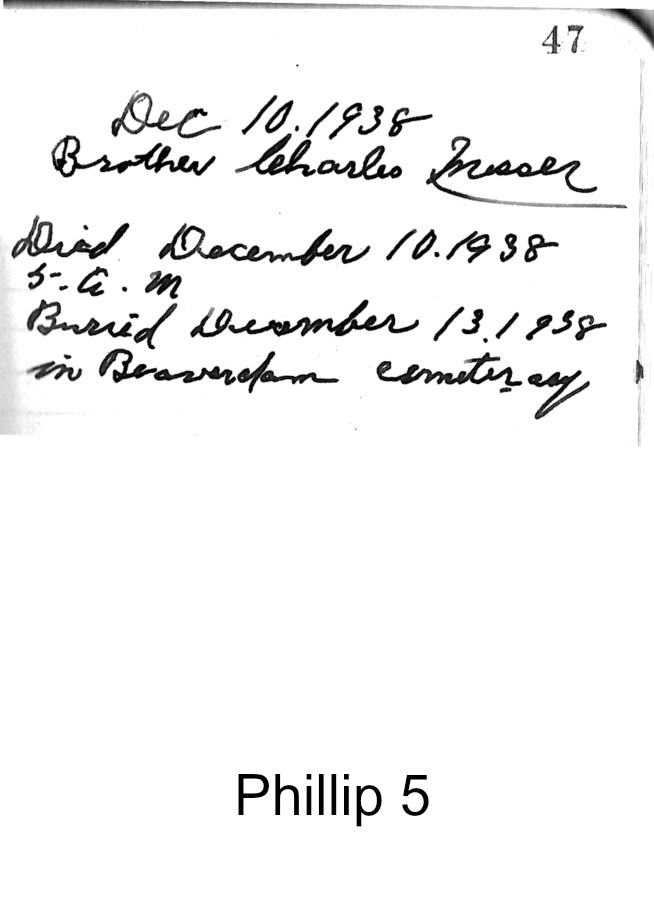 47
Dec 10.1938
Brother Charles Messer
Died December 10.1938
5-A.M
Buried December 13.1938
in Beaverdam cemeteray
Phillip 5